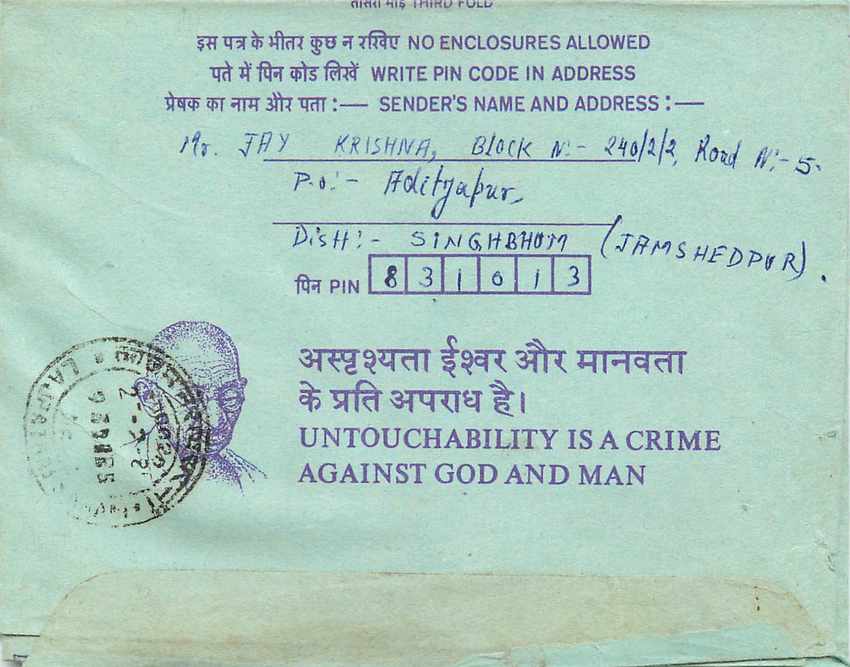 तीसरा मोड़ THIRD FOLD
इस पत्र के भीतर कुछ न रखिए NO ENCLOSURES ALLOWED
पते में पिन कोड लिखें WRITE PIN CODE IN ADDRESS
प्रेषक का नाम और पता :— SENDER'S NAME AND ADDRESS :—
Mr. JAY KRISHNA, BLOCK N:- 240/2/2, Road N:- 5.
P.O:- Adityapur,
Distt:- SINGHBHUM (JAMSHEDPUR).
पिन PIN 831013
अस्पृश्यता ईश्वर और मानवता
के प्रति अपराध है।
UNTOUCHABILITY IS A CRIME
AGAINST GOD AND MAN